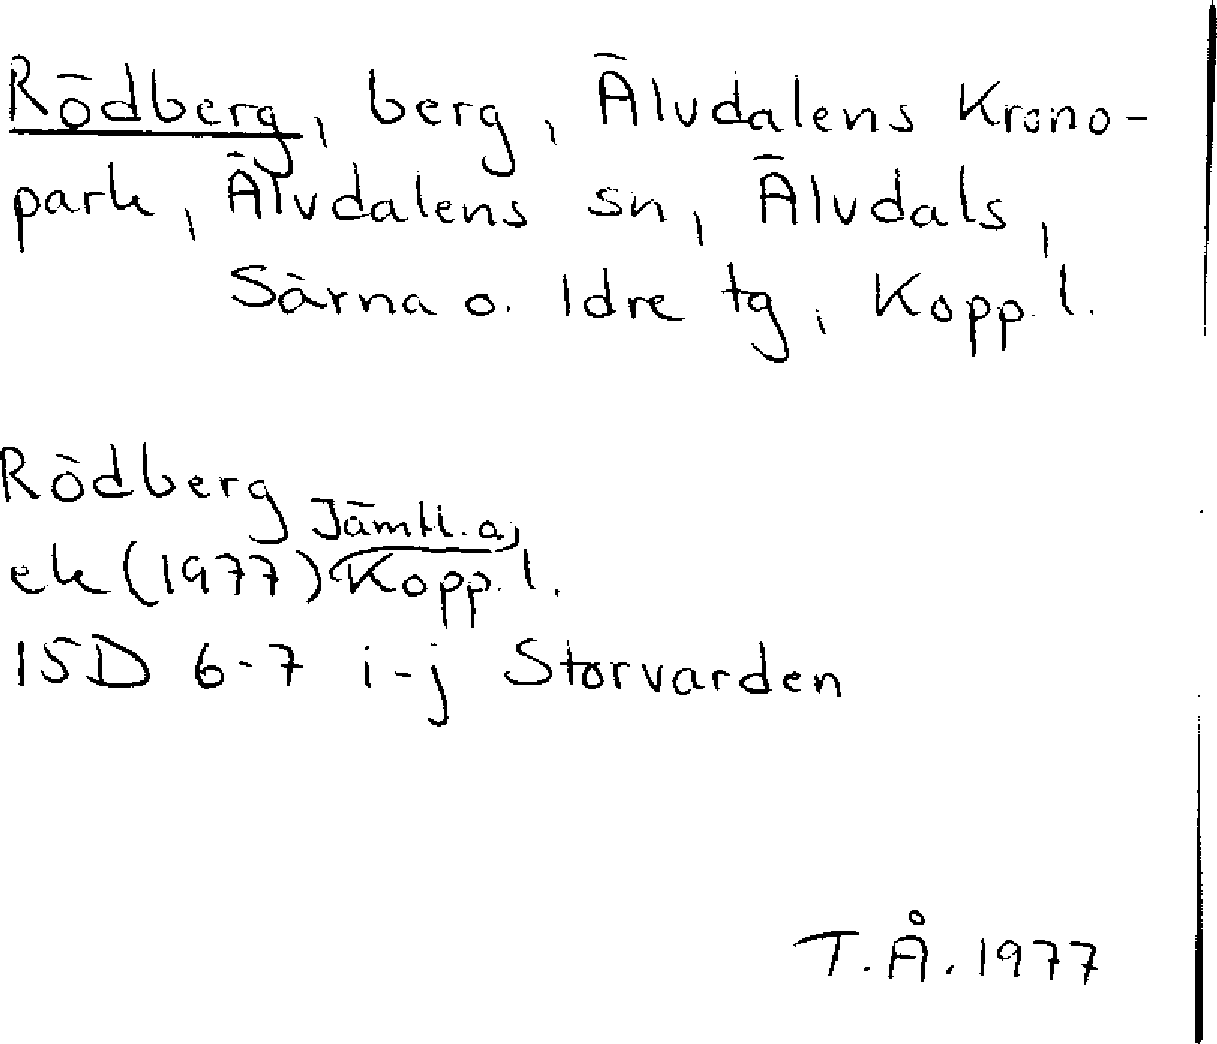 Rödberg, berg, Älvdalens Krono-
park, Älvdalens sn, Älvdals,
Särna o. Idre tg, Kopp. l.
Rödberg
Jämtl. a,
ek (1977) Kopp. l.
15D 6-7 i-j Storvarden
T. Å. 1977